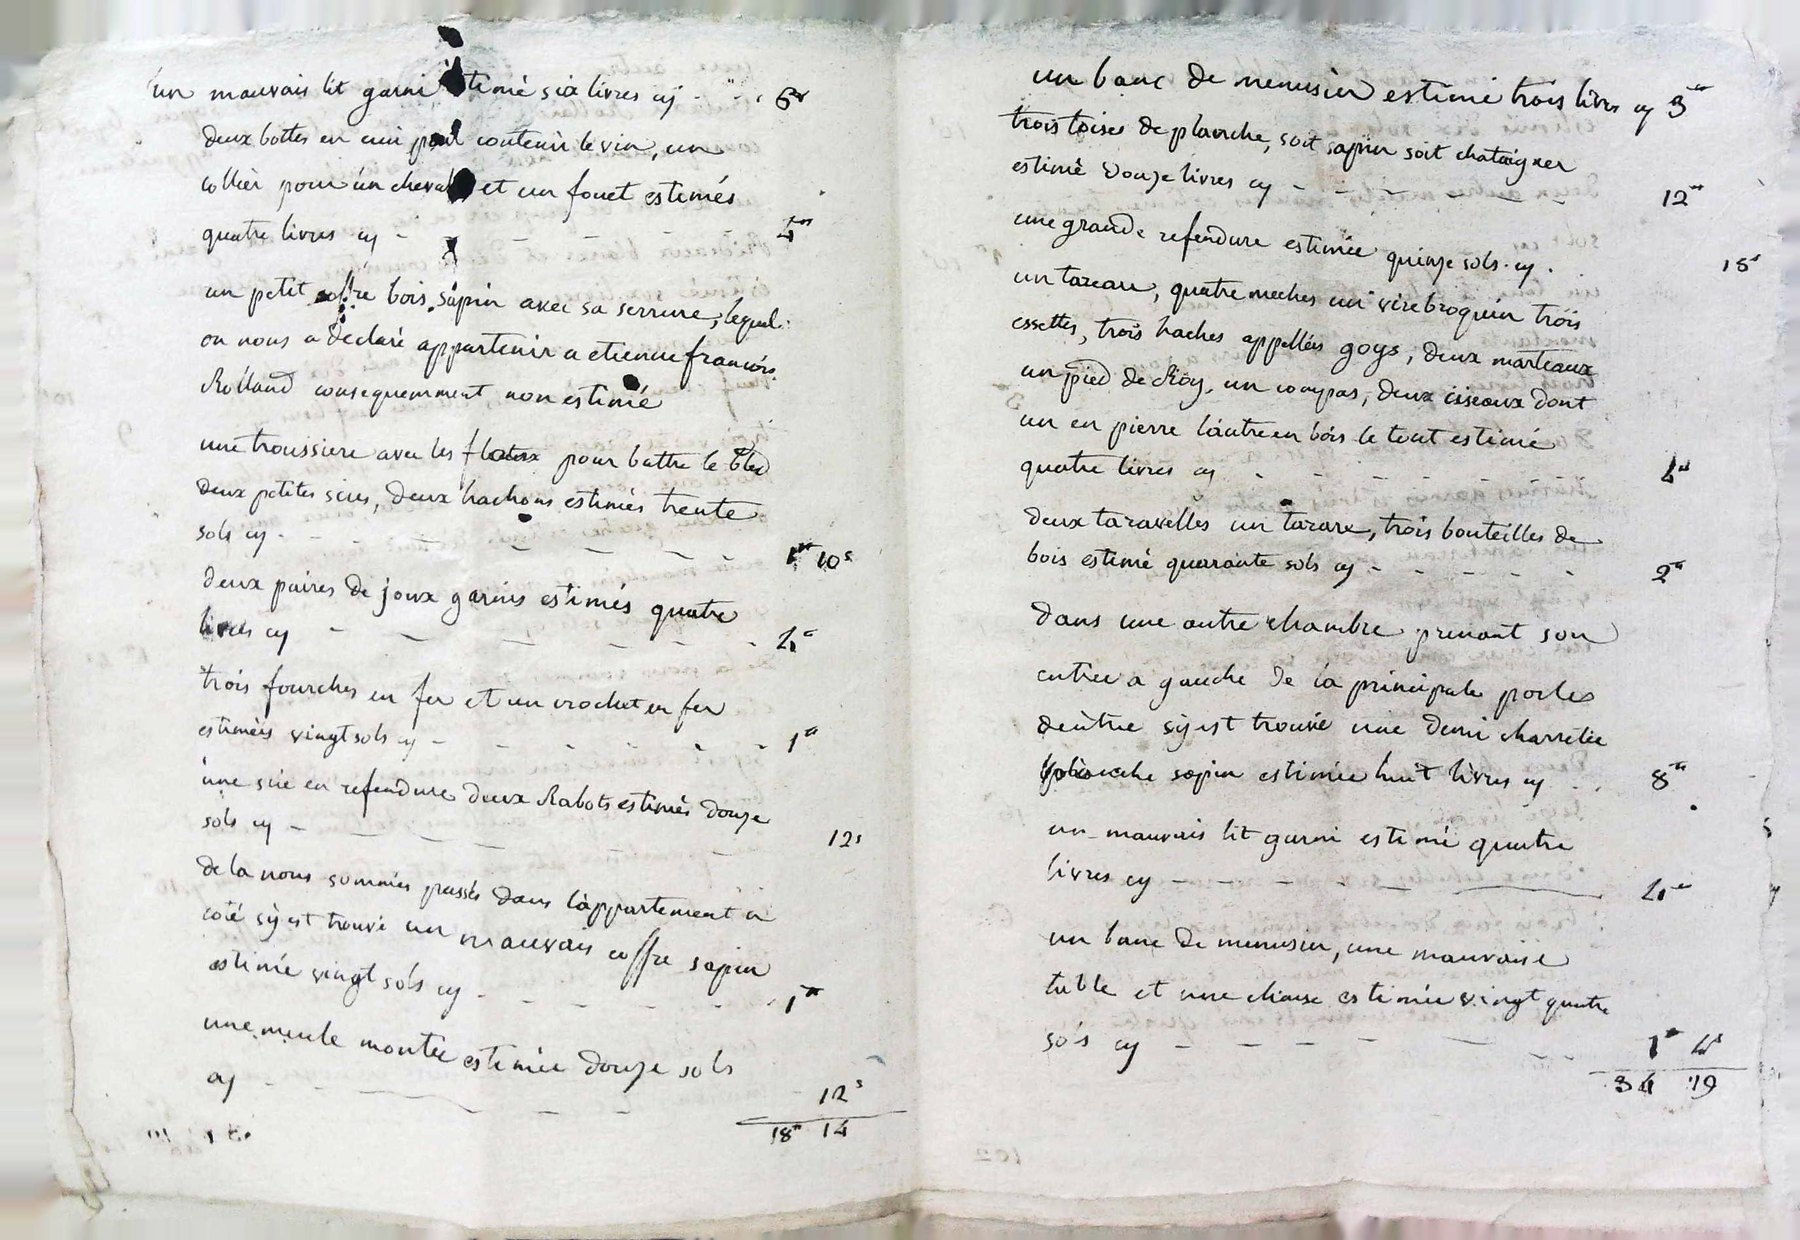 un mauvais lit garni estimé six livres cy - - - 6ᵗᵗ
deux bottes en cuir pour contenir le vin, un
collier pour un cheval et un fouet estimés
quatre livres cy - - - - - 4ᵗᵗ
un petit coffre bois sapin avec sa serrure, lequel
on nous a declaré appartenir a etienne françois
Rolland consequemment non estimé
une troussiere avec les pour battre le bled
deux petites sies, deux hachons estimés trente
sols cy - - - - - - 1ᵗᵗ 10ˢ
deux paires de joux garnis estimés quatre
livres cy - - - - - - 4ᵗᵗ
trois fourches en fer et un crochet en fer
estimés vingt sols cy - - - - - - 1ᵗᵗ
une sie en refendure deux Rabots estimés douze
sols cy - - - - - 12ˢ
de la nous sommes passés dans l'appartement à
coté s'y est trouvé un mauvais coffre sapin
estimé vingt sols cy - - - - - 1ᵗᵗ
une meule montée estimée douze sols
cy - - - - - 12ˢ
18ᵗᵗ 14
un banc de menusier estimé trois livres cy 3ᵗᵗ
trois toises de planche, soit sapin soit chataigner
estimé douze livres cy - - - - - 12ᵗᵗ
une grande refendure estimée quinze sols cy . 15ˢ
un tarare, quatre meches un virebroquin trois
essettes, trois haches appellées goys, deux marteaux
un pied de Roy, un compas, deux ciseaux dont
un en pierre l'autre en bois le tout estimé
quatre livres cy - - - - - - 4ᵗᵗ
deux taravelles un tarare, trois bouteilles de
bois estimé quarante sols cy - - - - - 2ᵗᵗ
dans une autre chambre prenant son
entrée a gauche de la principale porte
d'entrée s'y est trouvé une demi charretée
planche sapin estimée huit livres cy - - 8ᵗᵗ
un mauvais lit garni estimé quatre
livres cy - - - - - 4ᵗᵗ
un banc de menusier, une mauvaise
table et une chaise estimée vingt quatre
sols cy - - - - - 1ᵗᵗ 4ˢ
34 19